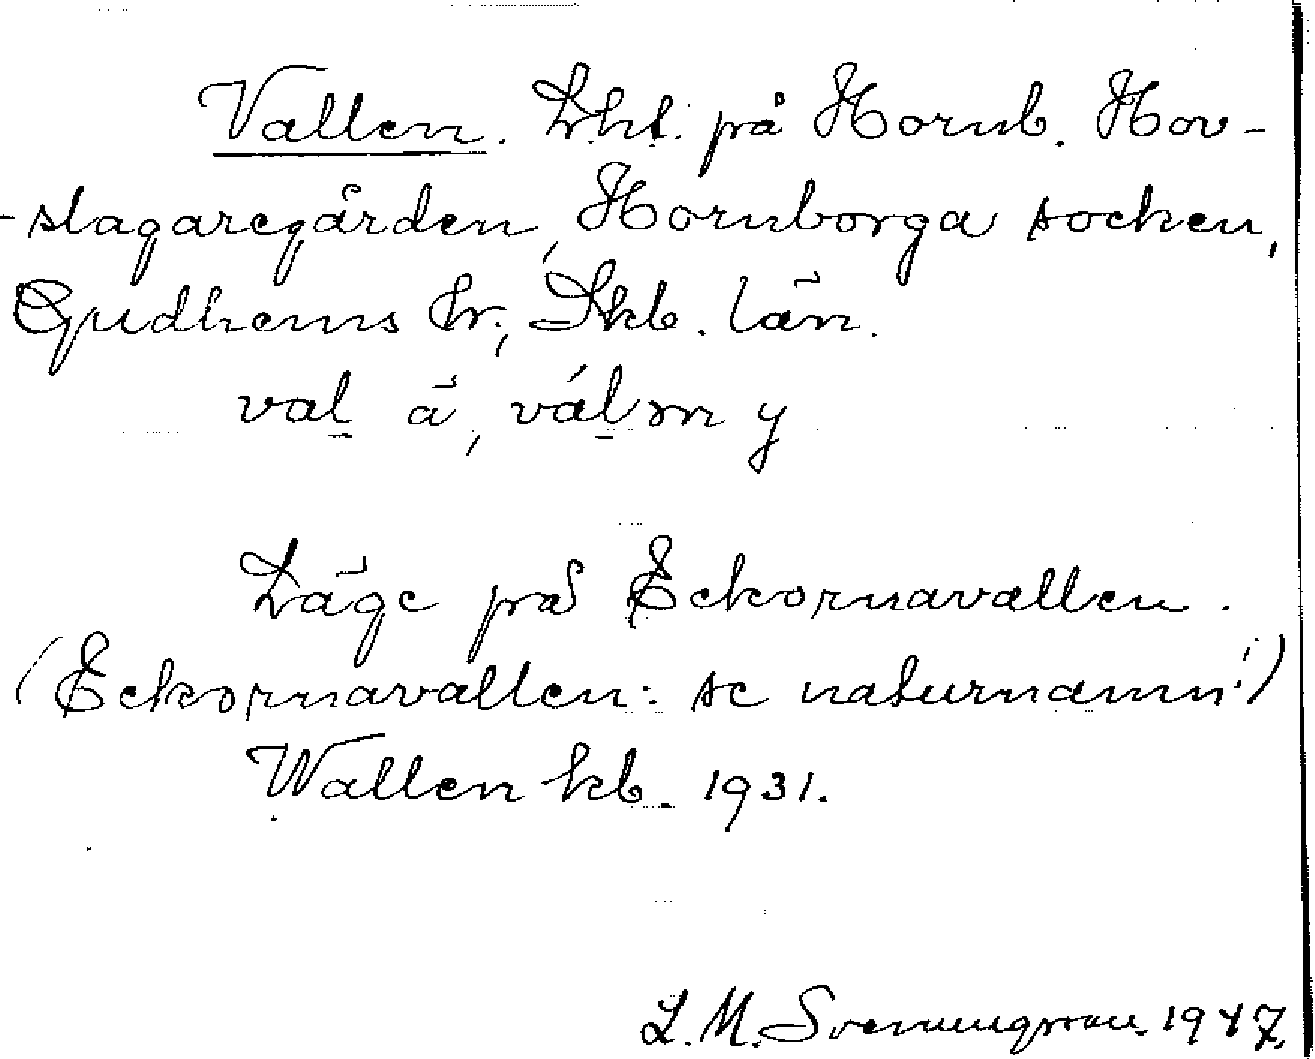 Vallen. Lht. på Hornb. Hov-
-slagaregården, Hornborga socken,
Gudhems hr., Skb. län.
val ā, válm y
Läge på Eckornavallen.
(Eckornavallen: se naturnamn!)
Wallen kb. 1931.
L. M. Svenungsson. 1947.